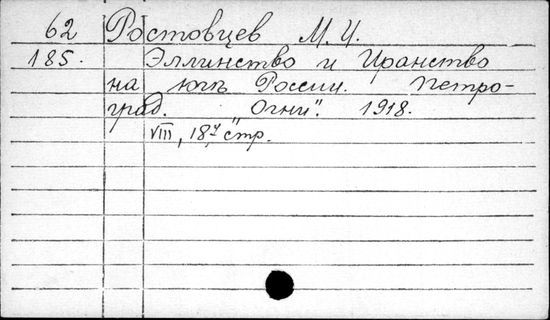 62 Ростовцев М. И.
185. Эллинство и Иранство
на югѣ России. Петро-
град. "Огни". 1918.
VIII, 187 стр.